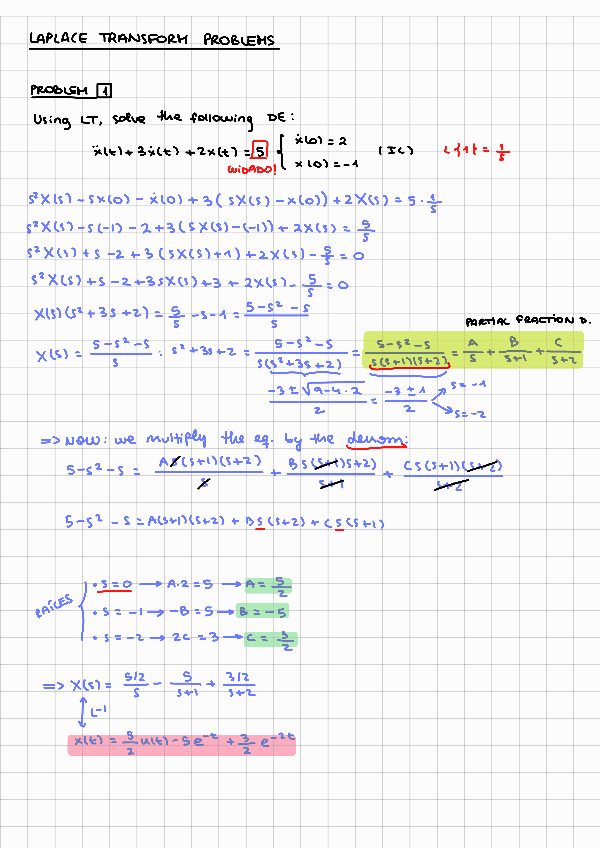 LAPLACE TRANSFORM PROBLEMS
PROBLEM 1
Using LT, solve the following DE:
ẍ(t) + 3ẋ(t) + 2x(t) = 5 { ẋ(0) = 2 x(0) = -1 (IC) L{1} = 1/s
CUIDADO!
s²X(s) - sx(0) - ẋ(0) + 3(sX(s) - x(0)) + 2X(s) = 5 · 1/s
s²X(s) - s(-1) - 2 + 3(sX(s) - (-1)) + 2X(s) = 5/s
s²X(s) + s - 2 + 3(sX(s) + 1) + 2X(s) - 5/s = 0
s²X(s) + s - 2 + 3sX(s) + 3 + 2X(s) - 5/s = 0
X(s)(s² + 3s + 2) = 5/s - s - 1 = (5 - s² - s)/s
PARTIAL FRACTION D.
X(s) = (5 - s² - s)/s : s² + 3s + 2 = (5 - s² - s)/(s(s² + 3s + 2)) = (5 - s² - s)/(s(s+1)(s+2)) = A/s + B/(s+1) + C/(s+2)
(-3 ± √(9 - 4 · 2))/2 = (-3 ± 1)/2 s = -1 s = -2
=> NOW: we multiply the eq. by the denom:
5 - s² - s = As(s+1)(s+2)/s + Bs(s+1)(s+2)/(s+1) + Cs(s+1)(s+2)/(s+2)
5 - s² - s = A(s+1)(s+2) + Bs(s+2) + Cs(s+1)
RAÍCES
• s = 0 → A·2 = 5 → A = 5/2
• s = -1 → -B = 5 → B = -5
• s = -2 → 2C = 3 → C = 3/2
=> X(s) = (5/2)/s - 5/(s+1) + (3/2)/(s+2)
L⁻¹
x(t) = 5/2 u(t) - 5e^-t + 3/2 e^-2t